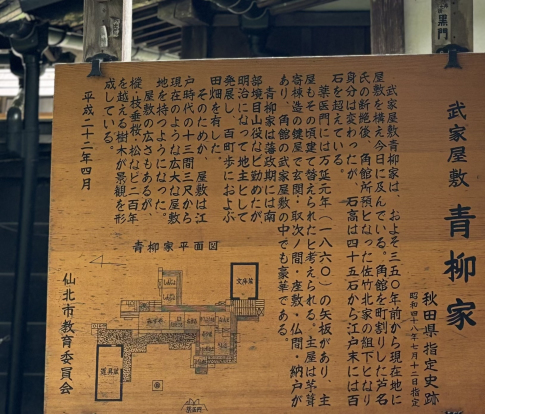 黒門
武家屋敷 青柳家
秋田県指定史跡
昭和四十八年七月十二日指定
武家屋敷青柳家は、およそ三五〇年前から現在地に
屋敷を構え今日に及んでいる。角館を町割りした芦名
氏の断絶後、角館所預となった佐竹北家の組下となり
身分は変わったが、石高は四十五石から江戸末には百
石を超えている。
薬医門には万延元年(一八六〇)の矢板があり、主
屋もその頃建て替えられたと考えられる。主屋は茅葺
寄棟造の鍵屋で玄関・取次ノ間・座敷・仏間・納戸が
あり、角館の武家屋敷の中でも豪華である。
青柳家は藩政期には南
部境目山役など勤めたが
明治になって地主として
発展し、百町歩におよぶ
田畑を有した。
そのためか、屋敷は江
戸時代の十三間三尺から
現在のような広大な屋敷
地を持つようになった。
屋敷の広さもあるが、
樅・枝垂桜・松など二百年
を越える樹木が景観を形
成している。
平成二十二年四月
仙北市教育委員会
青柳家平面図
文庫蔵
道具蔵
薬医門